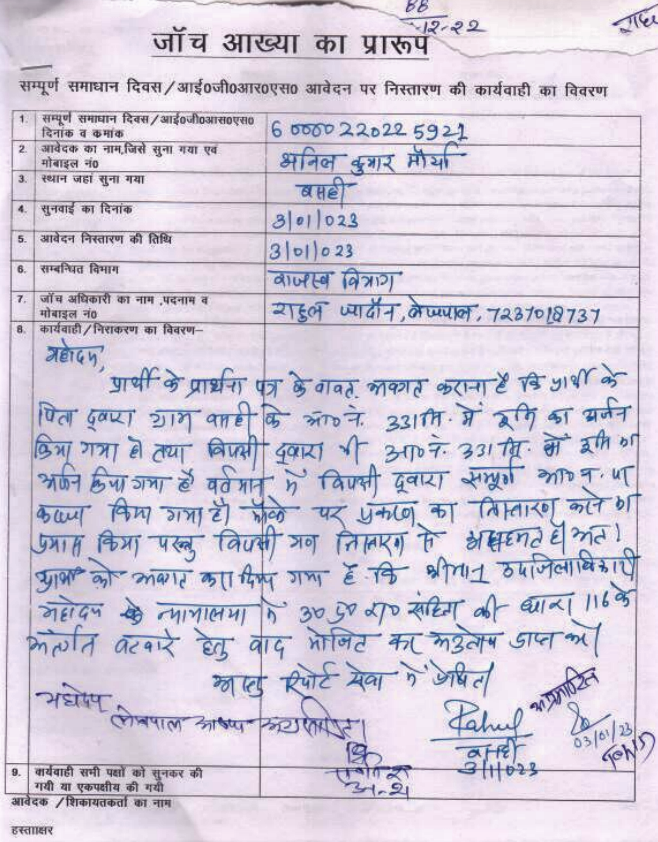 BB
12-22
जॉच आख्या का प्रारूप
सम्पूर्ण समाधान दिवस/आई0जी0आर0एस0 आवेदन पर निस्तारण की कार्यवाही का विवरण
1. सम्पूर्ण समाधान दिवस/आई0जी0आस0एस0 दिनांक व कमांक 60000220225921
2. आवेदक का नाम,जिसे सुना गया एवं मोबाइल नं0 अनिल कुमार मौर्या
3. स्थान जहां सुना गया बमही
4. सुनवाई का दिनांक 3/01/023
5. आवेदन निस्तारण की तिथि 3/01/023
6. सम्बन्धित विभाग राजस्व विभाग
7. जॉच अधिकारी का नाम ,पदनाम व मोबाइल नं0 राहुल जादौन, लेखपाल, 7237018737
8. कार्यवाही/निराकरण का विवरण–
महोदय,
प्रार्थी के प्रार्थना पत्र के बावत अवगत कराना है कि प्रार्थी के
पिता द्वारा ग्राम बमही के आ0 नं. 331मि. में भूमि का अर्जन
किया गया है तथा विपक्षी द्वारा भी आ0 नं. 331 मि. में भूमि का
अर्जन किया गया है वर्तमान में विपक्षी द्वारा सम्पूर्ण आ0 न. पर
कब्जा किया गया है। मौके पर प्रकरण का निस्तारण करने का
प्रयास किया परन्तु विपक्षी गण निस्तारण से असहमत है अत।
प्रार्थी को अवगत करा दिया गया है कि श्रीमान् उपजिलाधिकारी
महोदय के न्यायालय में उ0 प्र0 रा0 संहिता की धारा 116 के
अंतर्गत बटवारे हेतु वाद योजित कर अनुतोष प्राप्त करे।
आख्या रिपोर्ट सेवा में प्रेषित।
महोदय
लेखपाल आख्या अग्रसारित।
Rahul
बमही
3/1/023
03/01/23
9. कार्यवाही सभी पक्षों को सुनकर की गयी या एकपक्षीय की गयी
आवेदक /शिकायतकर्ता का नाम
हस्ताक्षर